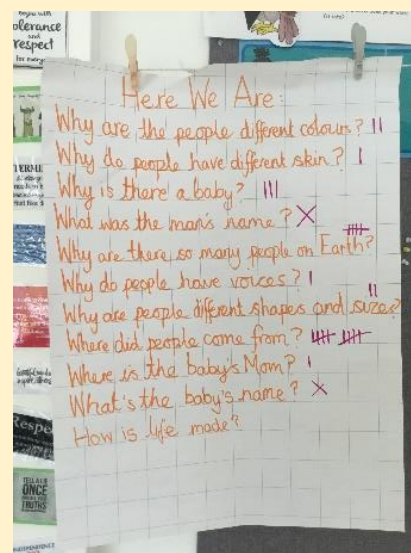 begin with
tolerance
and
respect
for everyone
Here We Are:
Why are the people different colours? ||
Why do people have different skin? |
Why is there a baby? |||
What was the man's name? X
Why are there so many people on Earth?
Why do people have voices? |
Why are people different shapes and sizes? ||
Where did people come from?
Where is the baby's Mom? |
What's the baby's name? X
How is life made?
TELL A LIE
ONCE
TRUTHS